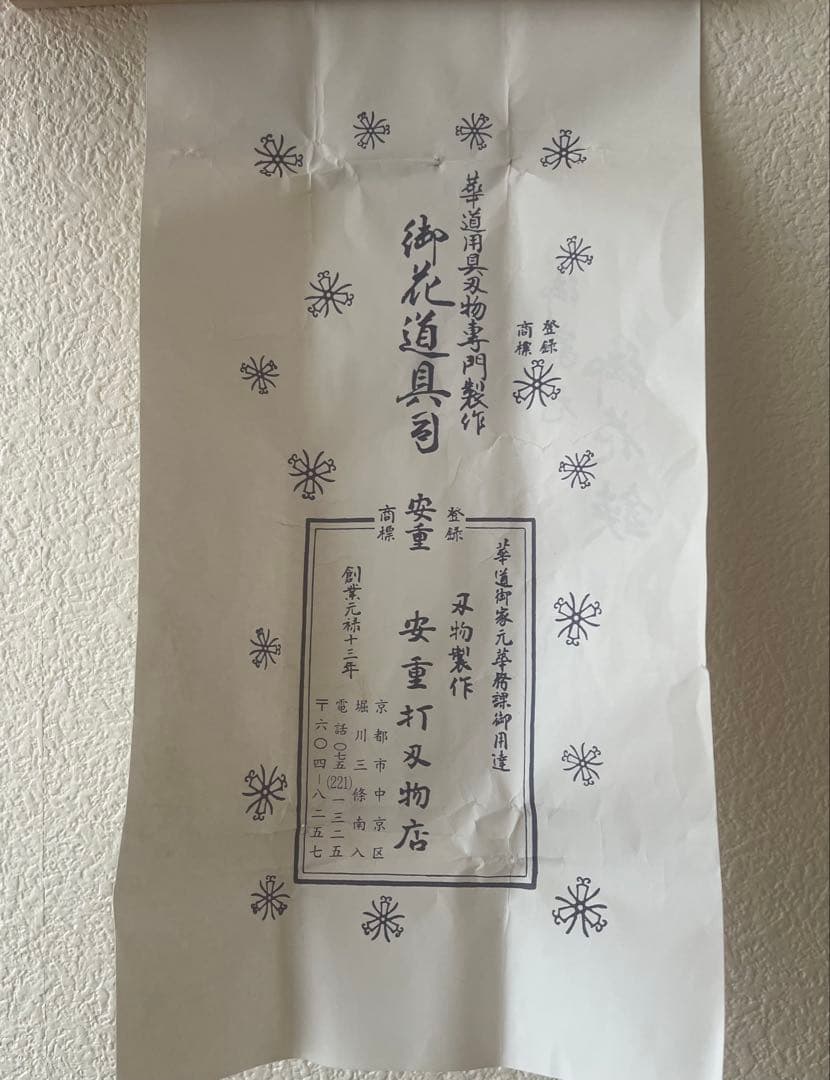 華道用具刃物専門製作
御花道具司
登録
商標
登録
商標
安重
華道御家元華務課御用達
刃物製作
安重打刃物店
創業元禄十三年
京都市中京区
堀川三條南入
電話〇七五(221)一三二五
〒六〇四－八二五七